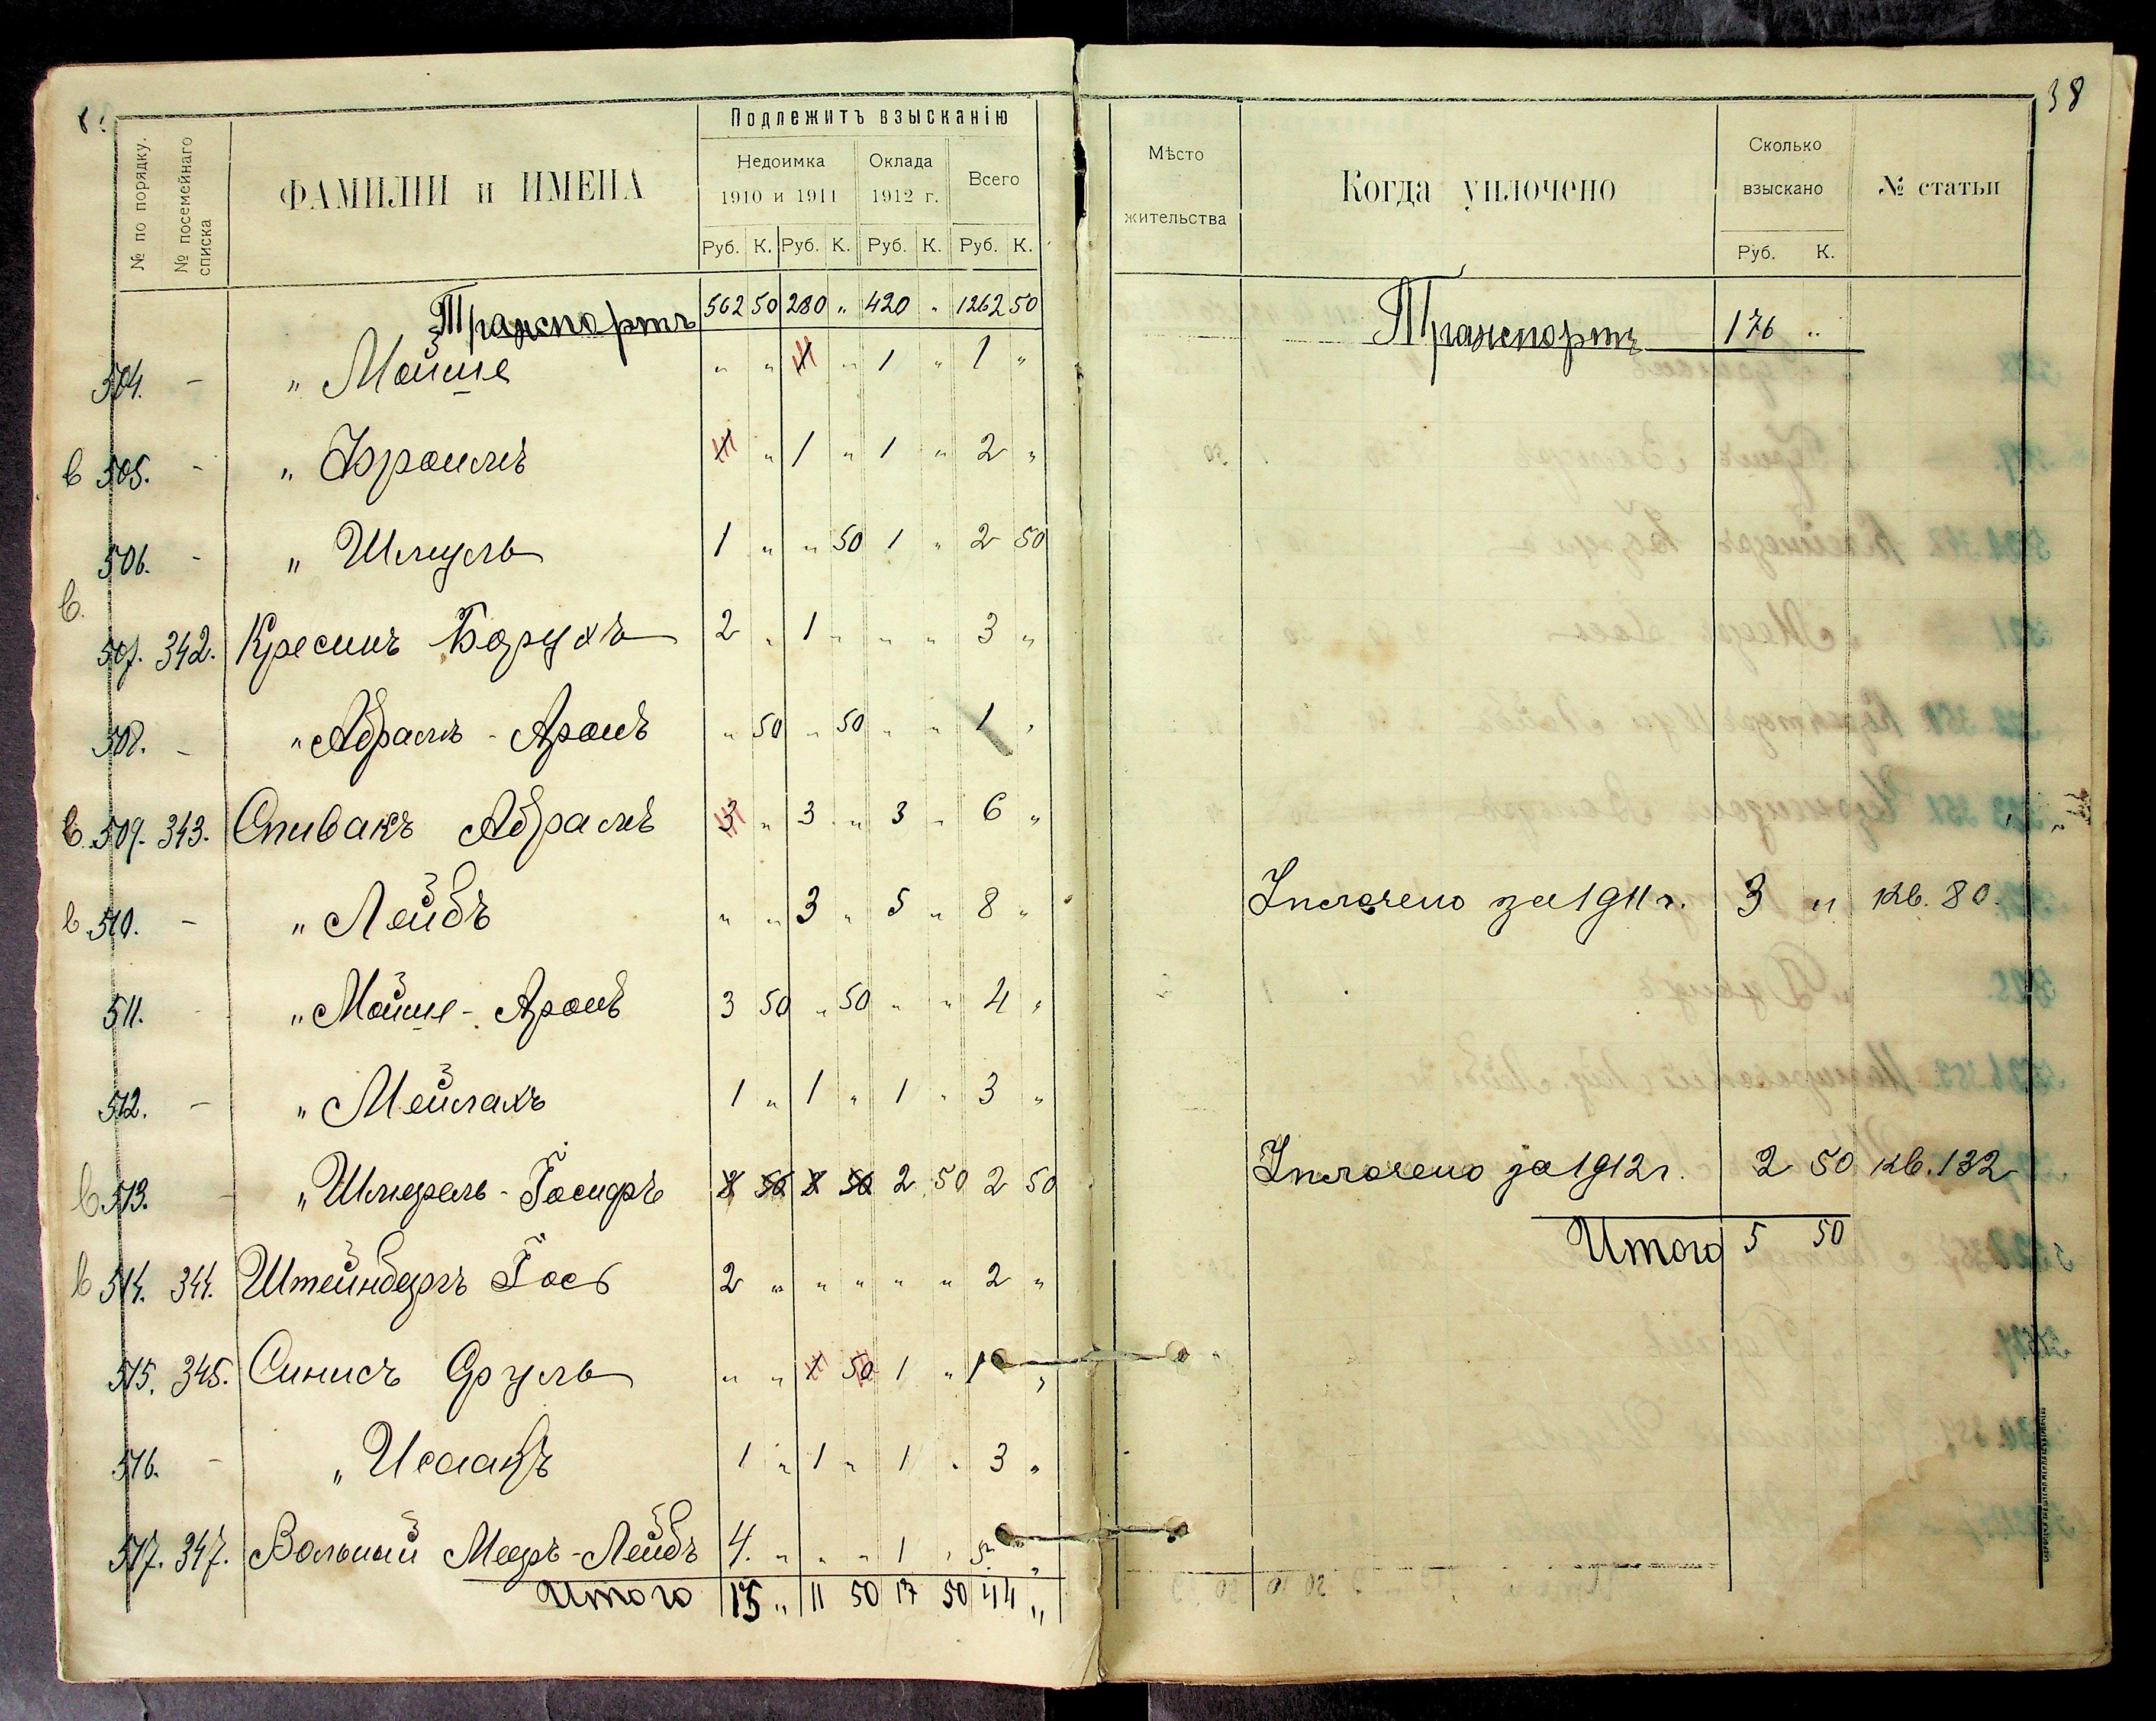 38
Подлежитъ взысканію
№ по порядку.
№ посемейнаго списка
ФАМИЛІИ и ИМЕНА
Недоимка
1910 и 1911
Оклада
1912 г.
Всего
Руб. К. Руб. К. Руб. К. Руб. К.
Транспортъ 562 50 280 „ 420 „ 1262 50
504. – „ Мойше „ „ „ 1 „ 1 „
в 505. – „ Изроилъ „ 1 „ 1 „ 2 „
506. – „ Шмуль 1 „ „ 50 1 „ 2 50
в.
507. 342. Кресинъ Борухъ 2 „ 1 „ „ „ 3 „
508. – „ Абрамъ - Аронъ „ 50 „ 50 „ „ 1 „
в. 509. 343. Спивакъ Абрамъ 3 „ 3 „ 3 „ 6 „
в. 510. – „ Лейбъ „ „ 3 „ 5 „ 8 „
511. - „ Мойше - Аронъ 3 50 „ 50 „ „ 4 „
512. – „ Мейлахъ 1 „ 1 „ 1 „ 3 „
в 513. – „ Шмерель - 2 50 2 50
в 514. 344. Штейнбергъ 2 „ „ „ „ „ 2 „
515. 345. Синисъ Сруль „ „ 1 50 1 „ 1 „
516. – „ Исаакъ 1 „ 1 „ 1 „ 3 „
517. 347. Вольный Мееръ - Лейбъ 4. „ „ „ 1 „ 5 „
Итого 15 „ 11 50 17 50 44 „
Мѣсто
жительства
Когда уплочено
Сколько
взыскано
Руб. К.
№ статьи
Транспортъ 176 „
Уплочено за 1911 г. 3 „ кв. 80.
Уплочено за 1912 г. 2 50 кв. 132
Итого 5 50